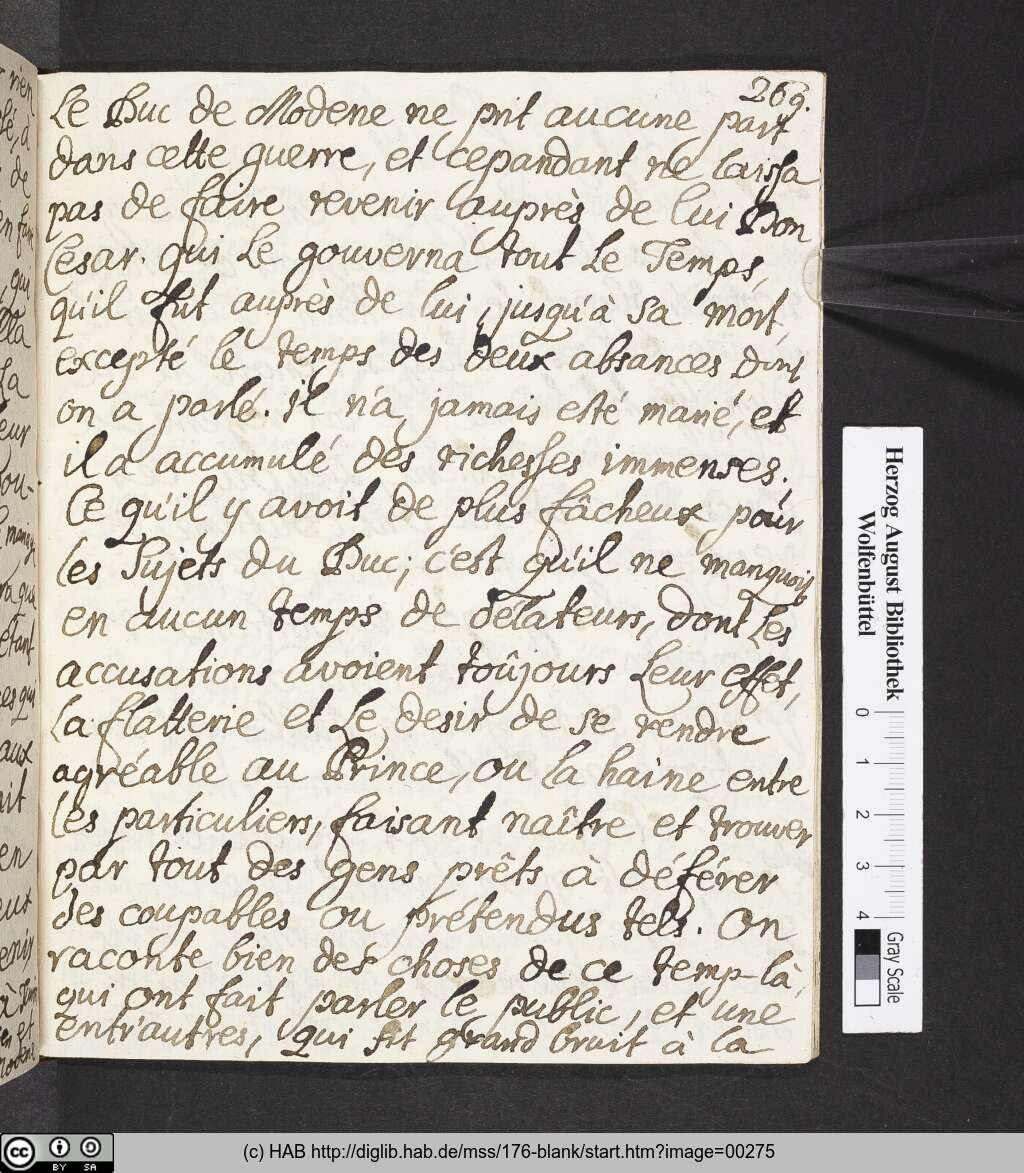 269.
Le Duc de Modene ne prit aucune part
dans cette guerre, et cepandant ne laissa
pas de faire revenir auprès de lui Don
Cesar. qui le gouverna tout le Temps,
qu'il fut auprès de lui, jusqu'à sa mort,
excepté le temps des deux absances dont
on a parlé. il n'a jamais esté marié, et
il a accumulé des richesses immenses.
Ce qu'il y avoit de plus fâcheux pour
les Sujets du Duc; c'est qu'il ne manquoit
en aucun temps de délateurs, dont les
accusations avoient toûjours leur effet,
la flatterie et le desir de se rendre
agréable au Prince, ou la haine entre
les particuliers, faisant naître et trouver
par tout des gens prêts à déférer
des coupables ou prétendus tels. On
raconte bien des choses de ce temp-là,
qui ont fait parler le public, et une
entr'autres, qui fit grand bruit à la
Herzog August Bibliothek
Wolfenbüttel
0 1 2 3 4
Gray Scale
cc BY SA
(c) HAB http://diglib.hab.de/mss/176-blank/start.htm?image=00275